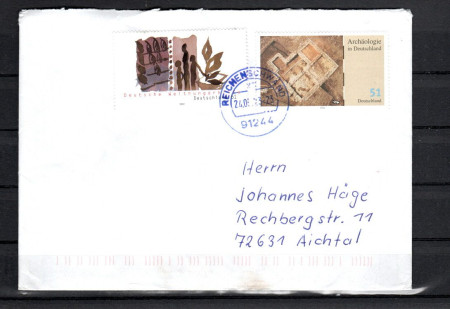 Archäologie
in Deutschland
51
Deutschland
Deutsche Welthungerhilfe
Deutschland
REICHENSCHWAND
91244
Herrn
Johannes Häge
Rechbergstr. 11
72631 Aichtal